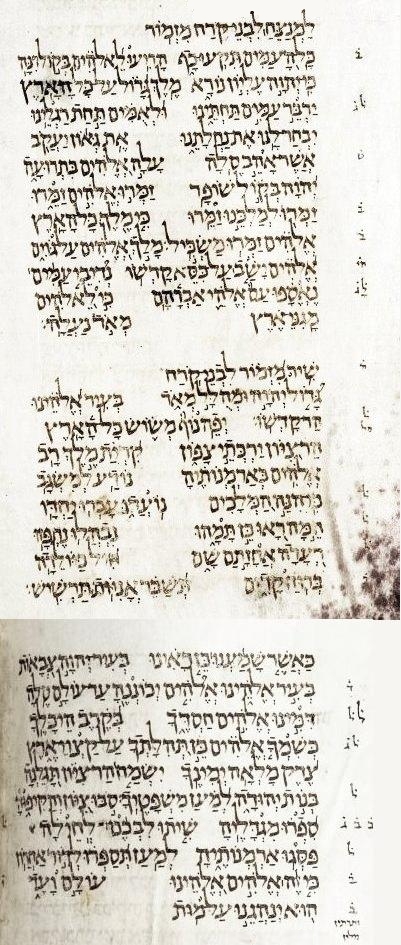 למנצח לבני קרח מזמור
כל העמים תקעו כף הריעו לאלהים בקול רנה
כי יהוה עליון נורא מלך גדול על כל הארץ
ידבר עמים תחתינו ולאמים תחת רגלינו
יבחר לנו את נחלתנו את גאון יעקב
אשר אהב סלה עלה אלהים בתרועה
יהוה בקול שופר זמרו אלהים זמרו
זמרו למלכנו זמרו כי מלך כל הארץ
אלהים זמרו משכיל מלך אלהים על גוים
אלהים ישב על כסא קדשו נדיבי עמים
נאספו עם אלהי אברהם כי לאלהים
מגני ארץ מאד נעלה
שיר מזמור לבני קרח
גדול יהוה ומהלל מאד בעיר אלהינו
הר קדשו יפה נוף משוש כל הארץ
הר ציון ירכתי צפון קרית מלך רב
אלהים בארמנותיה נודע למשגב
כי הנה המלכים נועדו עברו יחדו
המה ראו כן תמהו נבהלו נחפזו
רעדה אחזתם שם חיל כיולדה
ברוח קדים תשבר אניות תרשיש
כאשר שמענו כן ראינו בעיר יהוה צבאות
בעיר אלהינו אלהים יכוננה עד עולם סלה
דמינו אלהים חסדך בקרב היכלך
כשמך אלהים כן תהלתך על קצוי ארץ
צדק מלאה ימינך ישמח הר ציון תגלנה
בנות יהודה למען משפטיך סבו ציון והקיפוה
ספרו מגדליה שיתו לבכם לחילה
פסגו ארמנותיה למען תספרו לדור אחרון
כי זה אלהים אלהינו עולם ועד
הוא ינהגנו עלמות